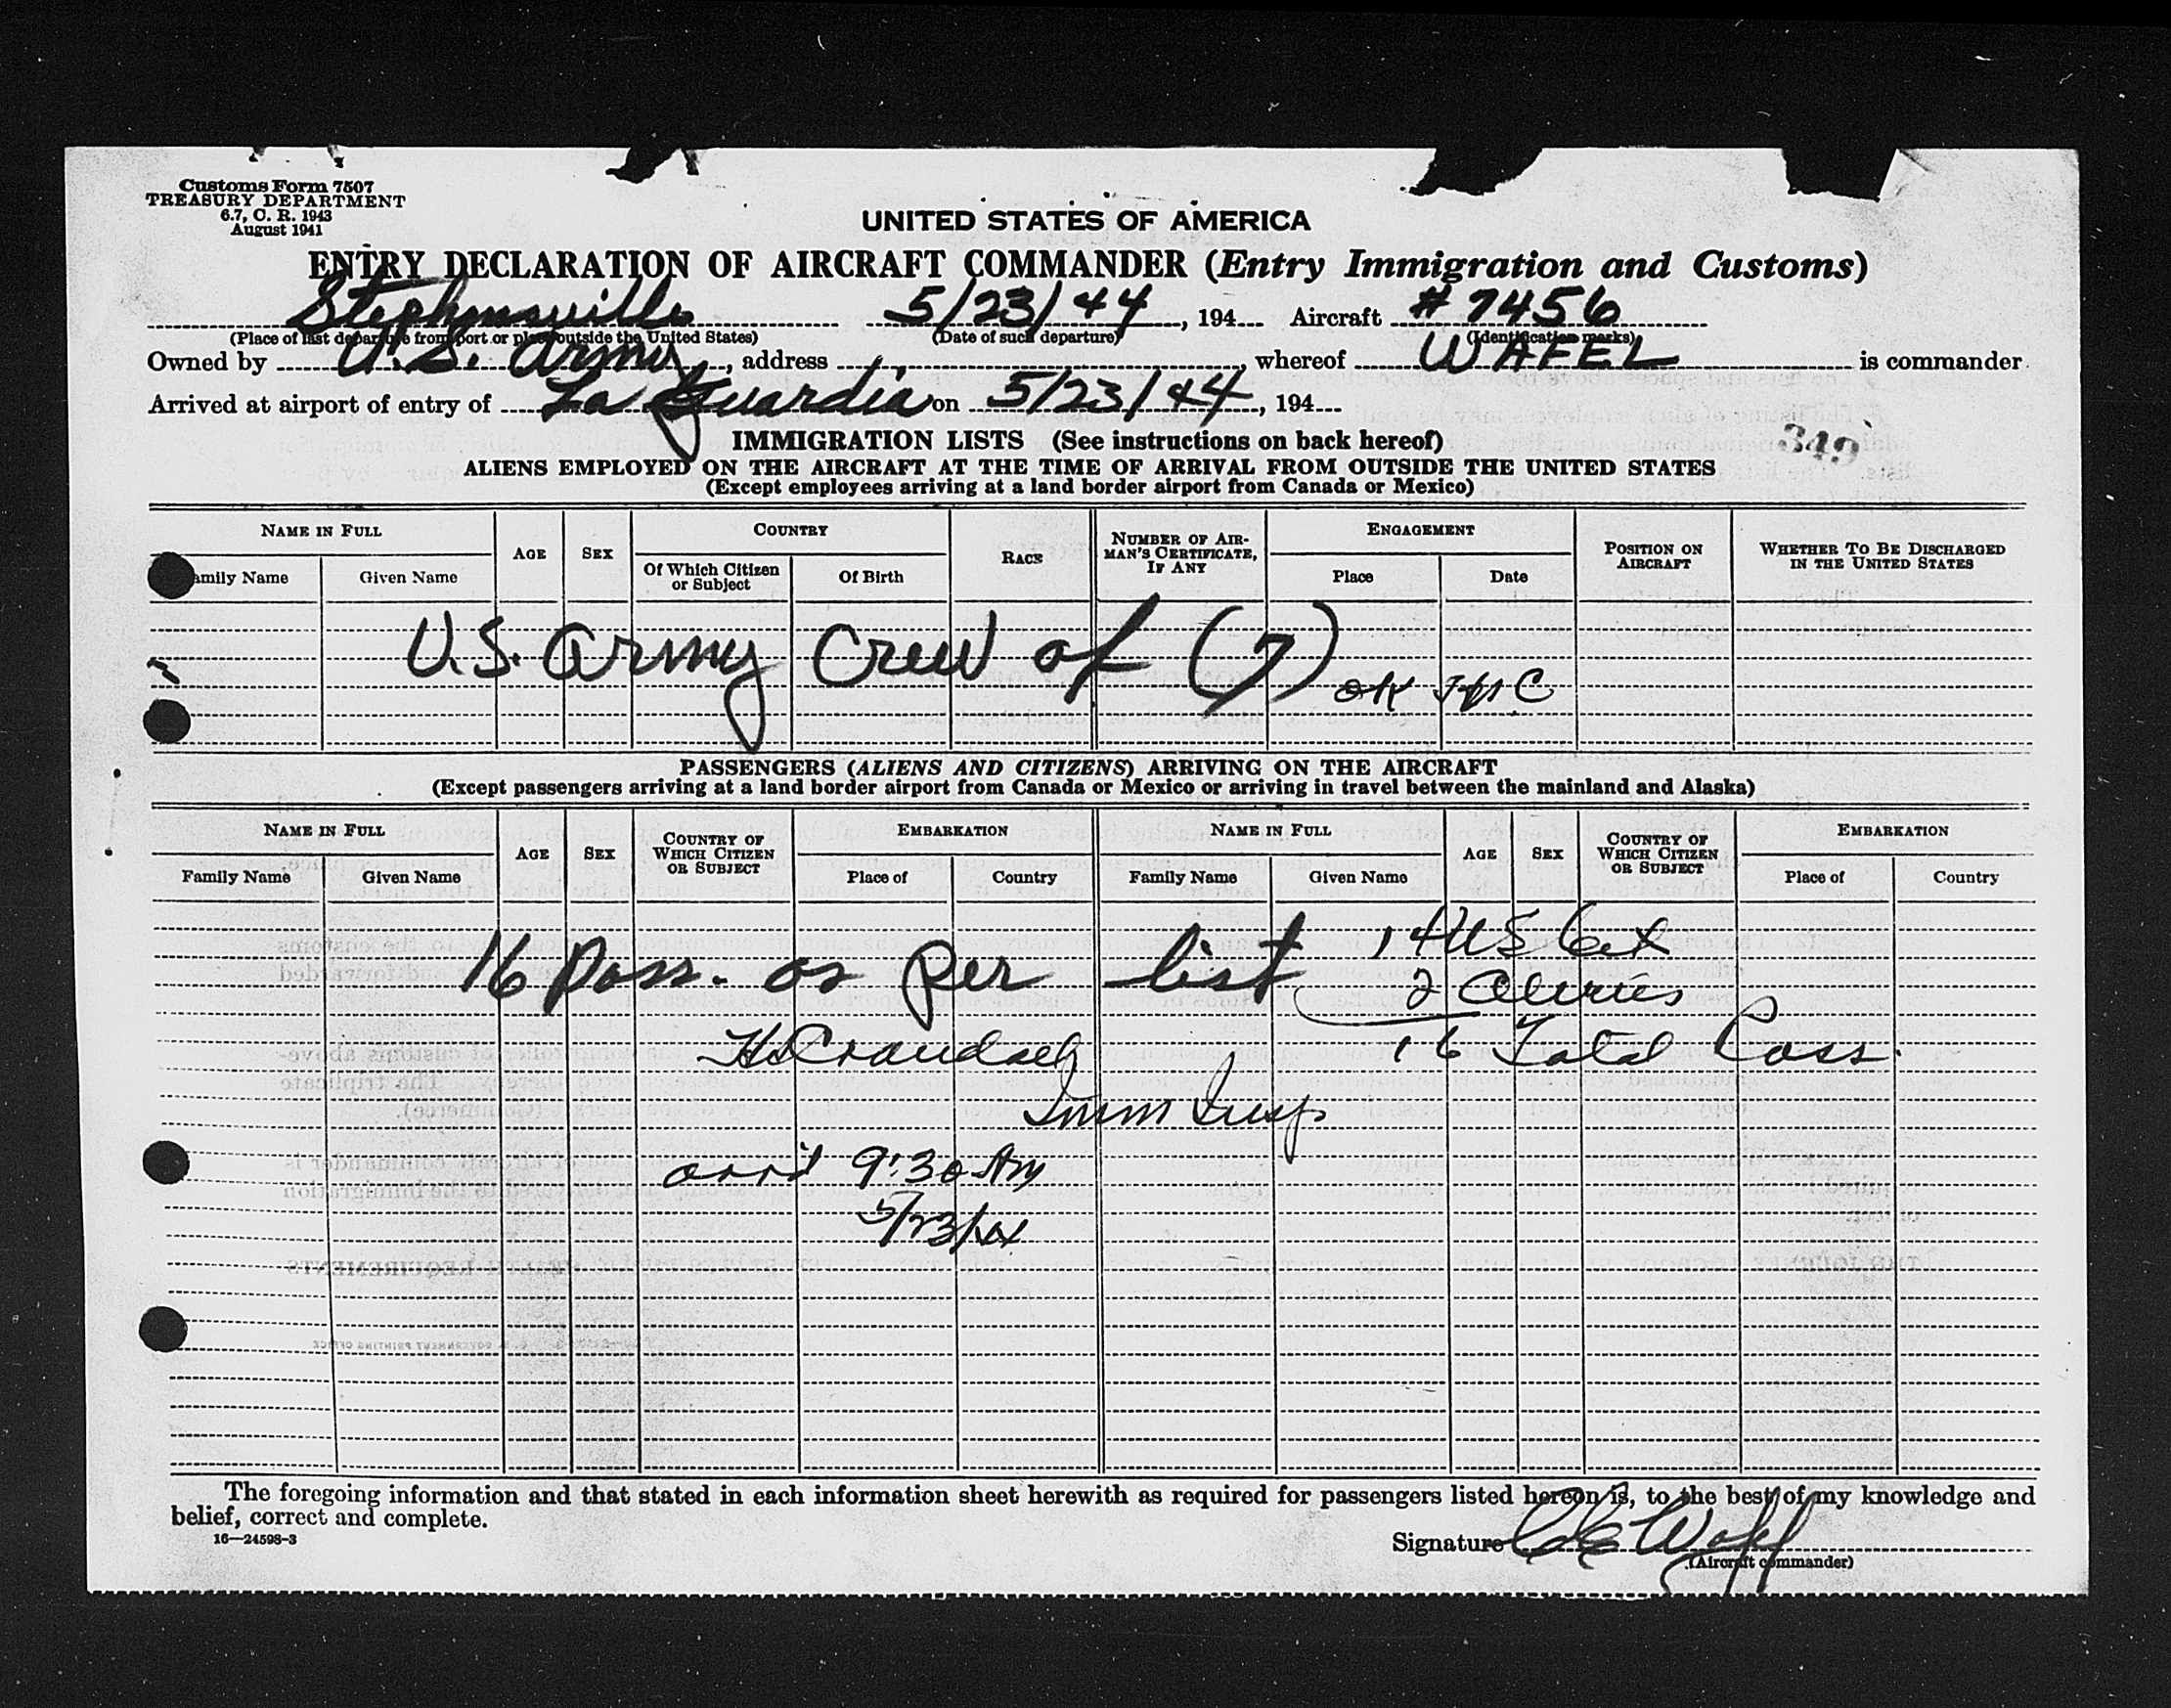 Customs Form 7507
TREASURY DEPARTMENT
6.7, C. R. 1943
August 1941
UNITED STATES OF AMERICA
ENTRY DECLARATION OF AIRCRAFT COMMANDER (Entry Immigration and Customs)
Stephensville 5/23/44, 194 Aircraft # 7456
(Place of last departure from port or place outside the United States) (Date of such departure) (Identification marks)
Owned by U.S. Army, address , whereof WAFEL is commander
Arrived at airport of entry of La Guardia on 5/23/44, 194
IMMIGRATION LISTS (See instructions on back hereof)
349
ALIENS EMPLOYED ON THE AIRCRAFT AT THE TIME OF ARRIVAL FROM OUTSIDE THE UNITED STATES
(Except employees arriving at a land border airport from Canada or Mexico)
NAME IN FULL AGE SEX COUNTRY RACE NUMBER OF AIRMAN'S CERTIFICATE, IF ANY ENGAGEMENT POSITION ON AIRCRAFT WHETHER TO BE DISCHARGED IN THE UNITED STATES
Family Name Given Name Of Which Citizen or Subject Of Birth Place Date
U.S. Army Crew of (7)
OK
PASSENGERS (ALIENS AND CITIZENS) ARRIVING ON THE AIRCRAFT
(Except passengers arriving at a land border airport from Canada or Mexico or arriving in travel between the mainland and Alaska)
NAME IN FULL AGE SEX COUNTRY OF WHICH CITIZEN OR SUBJECT EMBARKATION NAME IN FULL AGE SEX COUNTRY OF WHICH CITIZEN OR SUBJECT EMBARKATION
Family Name Given Name Place of Country Family Name Given Name Place of Country
16 Pass. as per list 14 US Cit
2 Aliens
H Crandall 16 Total Pass.
Imm Insp
arrd 9:30 AM
5/23/44
The foregoing information and that stated in each information sheet herewith as required for passengers listed hereon is, to the best of my knowledge and
belief, correct and complete.
16—24598-3
Signature Wafel
(Aircraft commander)